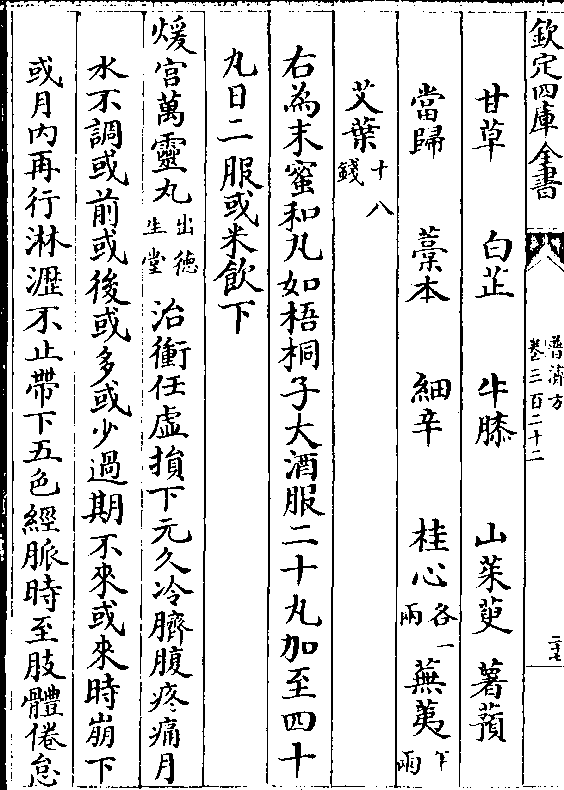 欽定四庫全書
普濟方
卷三百二十二
二十七
甘草 白芷 牛膝 山茱萸 薯蕷
當歸 藁本 細辛 桂心各一兩 蕪荑半兩
艾葉十八錢
右為末蜜和丸如梧桐子大酒服二十丸加至四十
丸日二服或米飲下
煖宫萬靈丸出德生堂 治衝任虛損下元久冷臍腹疼痛月
水不調或前或後或多或少過期不來或來時崩下
或月内再行淋瀝不止帶下五色經脈時至肢體倦怠